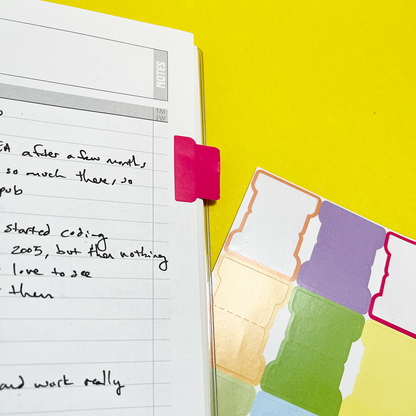 NOTES
T M
W
EA after a few months
so much there, so
pub
started coding
2005, but then nothing
love to see
then
and work really